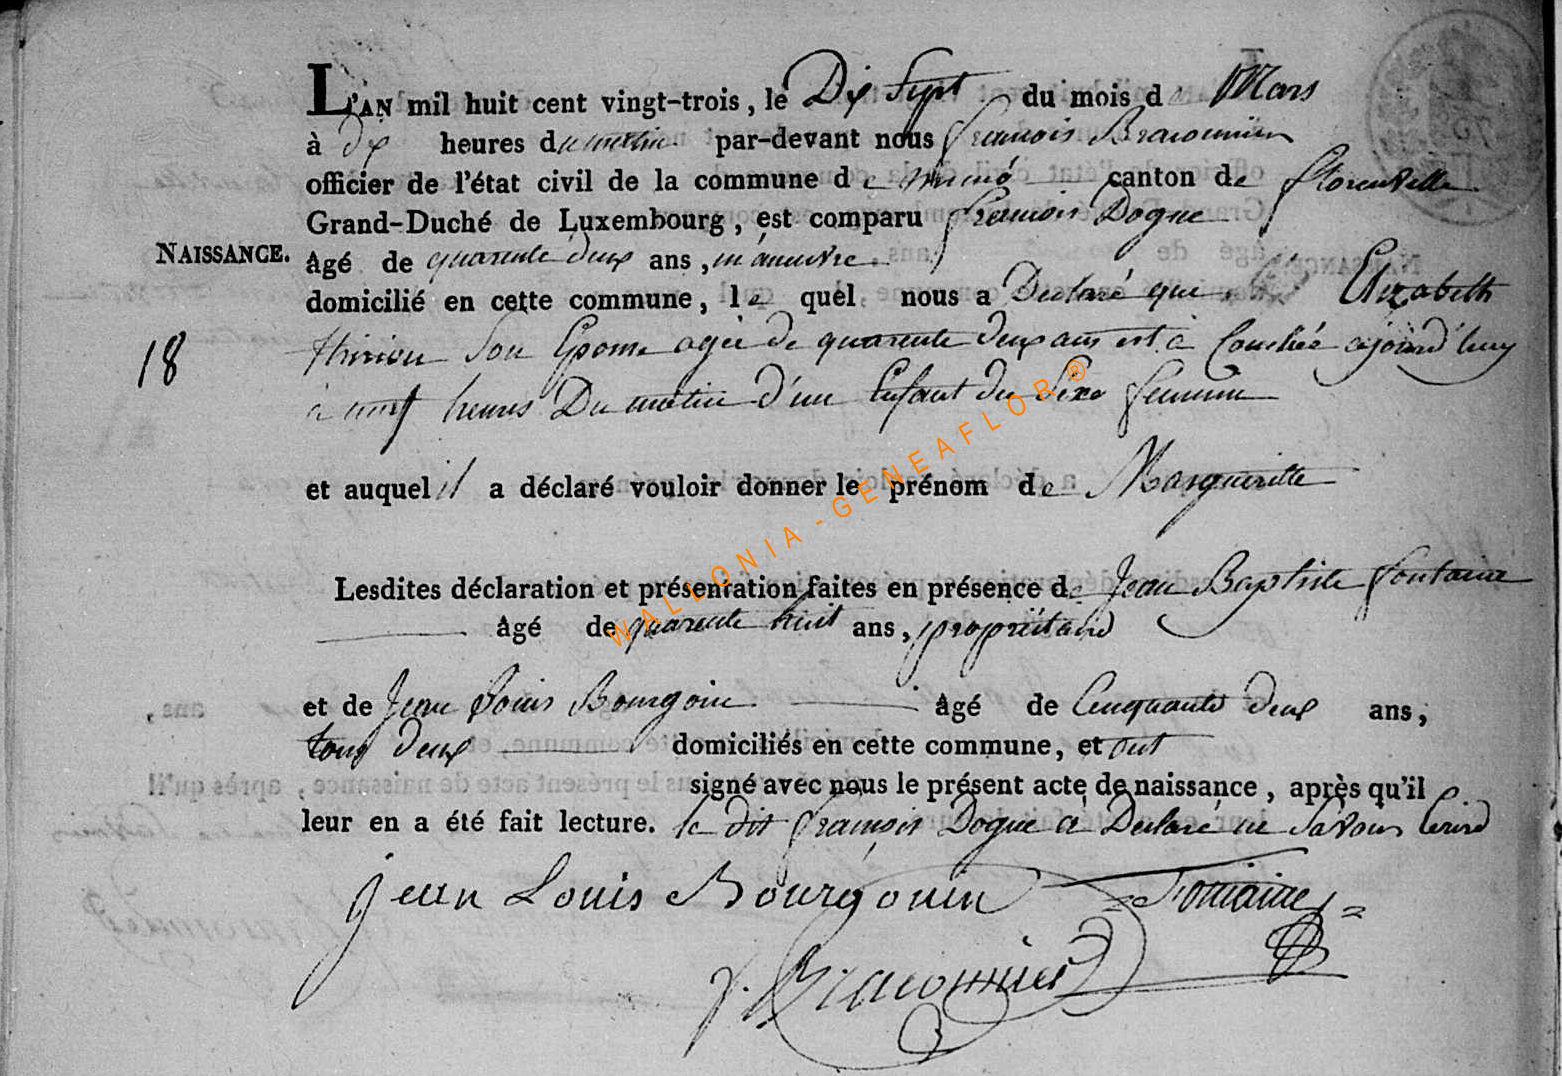 L'AN mil huit cent vingt-trois, le Dix Sept du mois de Mars
à dix heures du matin par-devant nous françois Braconnier
officier de l'état civil de la commune de muno canton de florenville
Grand-Duché de Luxembourg, est comparu françois Dogue
NAISSANCE.
âgé de quarente deux ans, manœuvre
domicilié en cette commune, le quel nous a Declaré que Elizabeth
18
thirion Son Epouse agée de quarente deux ans est à Couchée ajourd'huy
à neuf heures Du matin d'un Enfant du Sexe feminin
et auquel il a déclaré vouloir donner le prénom de Margueritte
Lesdites déclaration et présentation faites en présence de Jean Baptiste fontaine
âgé de quarente huit ans, propriétaire
et de Jean Louis Bourgoin âgé de Cinquante deux ans,
tous deux domiciliés en cette commune, et ont
signé avec nous le présent acte de naissance, après qu'il
leur en a été fait lecture. le dit françois Dogue à Declaré ne Savoir Ecrire
jean Louis Bourgouin Fontaine
f. Braconnier
WALLONIA - GENEAFLOR ®